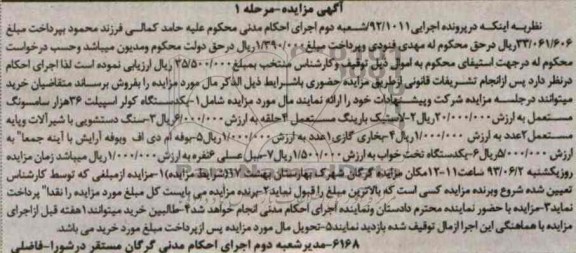 آگهی مزایده-مرحله ۱
نظر به اینکه در پرونده اجرایی ۹۲/۱۰۱۱/شعبه دوم اجرای احکام مدنی محکوم علیه حامد کمالی فرزند محمود بپرداخت مبلغ
۳۳/۰۶۱/۶۰۶ ریال در حق محکوم له مهدی فنودی وپرداخت مبلغ ۱/۳۹۰/۰۰۰ ریال در حق دولت محکوم ومدیون میباشد وحسب درخواست
محکوم له درجهت استیفای محکوم به اموال ذیل توقیف وکارشناس منتخب بمبلغ ۳۵/۵۰۰/۰۰۰ ریال ارزیابی نموده است لذا اجرای احکام
درنظر دارد پس ازانجام تشریفات قانونی ازطریق مزایده حضوری باشرایط ذیل الذکر مال مورد مزایده را بفروش برساند متقاضیان خرید
میتوانند درجلسه مزایده شرکت وپیشنهادات خود را ارائه نمایند مال مورد مزایده شامل ۱-یکدستگاه کولر اسپیلت ۳۶هزار سامسونگ
مستعمل به ارزش ۲۰/۰۰۰/۰۰۰ریال ۲-لاستیک بارینگ مستعمل ۴حلقه به ارزش ۶/۰۰۰/۰۰۰ریال ۳-سنگ دستشویی با شیرآلات وپایه
مستعمل ۲عدد به ارزش ۱/۰۰۰/۰۰۰ریال ۴-بخاری گازی ۱عدد به ارزش ۱/۰۰۰/۰۰۰ریال ۵-بوفه ام دی اف وبوفه آرایش با آینه جمعا" به
ارزش ۵/۰۰۰/۰۰۰ریال ۶-یکدستگاه تخت خواب به ارزش ۱/۵۰۰/۰۰۰ریال ۷-مبل عسلی ۶نفره به ارزش ۱/۰۰۰/۰۰۰ریال میباشد زمان مزایده
روزیکشنبه ۹۳/۰۶/۲ ساعت ۱۱-۱۲مکان مزایده گرگان شهرک بهارستان بهشت ۱۷(شرایط مزایده)۱-مزایده ازمبلغی که توسط کارشناس
تعیین شده شروع وبرنده مزایده کسی است که بالاترین مبلغ را قبول نماید ۲-برنده مزایده می بایست کل مبلغ مورد مزایده را نقدا" پرداخت
نماید ۳-مزایده با حضور نماینده محترم دادستان ونماینده اجرای احکام مدنی انجام خواهد شد ۴-طالبین خرید میتوانند ۱هفته قبل ازاجرای
مزایده با هماهنگی این اجرا ازمال توقیف شده بازدید نمایند ۵-تحویل مال مورد مزایده پس ازپرداخت مبلغ مورد خرید می باشد.
۶۱۶۸-مدیرشعبه دوم اجرای احکام مدنی گرگان مستقر درشورا-فاضلی